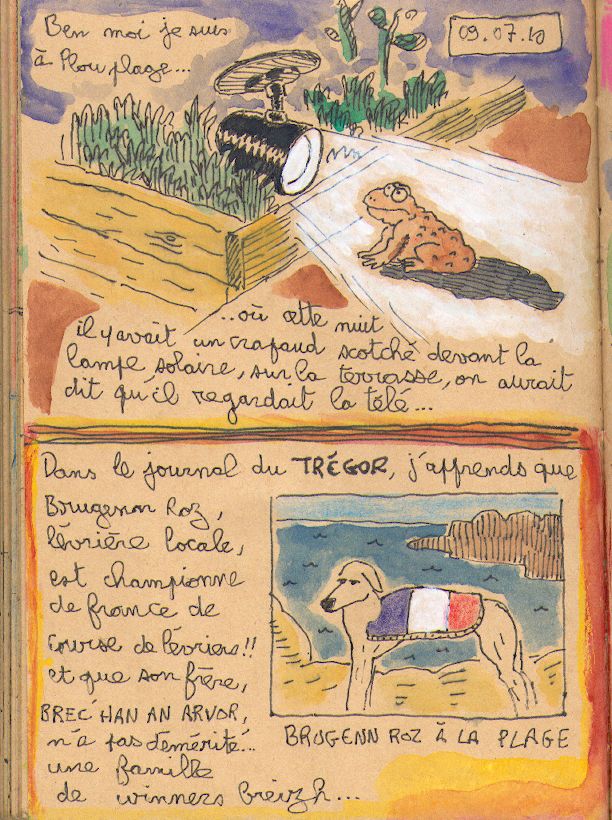 Ben moi je suis
à Plouplage...
09.07.10
...où cette nuit
il y avait un crapaud scotché devant la
lampe solaire, sur la terrasse, on aurait
dit qu'il regardait la télé...
Dans le journal du TRÉGOR, j'apprends que
Brugenn Roz,
lévrière locale,
est championne
de france de
course de lévriers!!
et que son frère,
BREC'HAN AN ARVOR,
n'a pas démérité...
une famille
de winners breizh...
BRUGENN ROZ À LA PLAGE